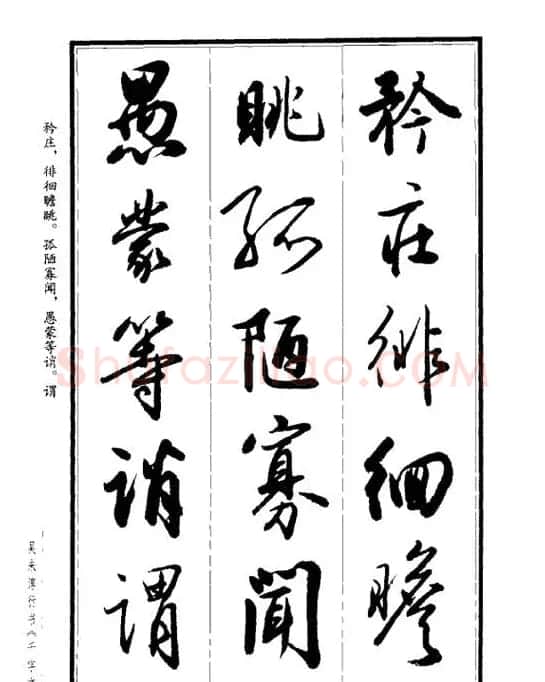 矜庄徘徊瞻
眺孤陋寡闻
愚蒙等诮谓
矜庄，徘徊瞻眺。孤陋寡闻，愚蒙等诮。谓
吴未淳行书《千字文
Shufaziliao.COM